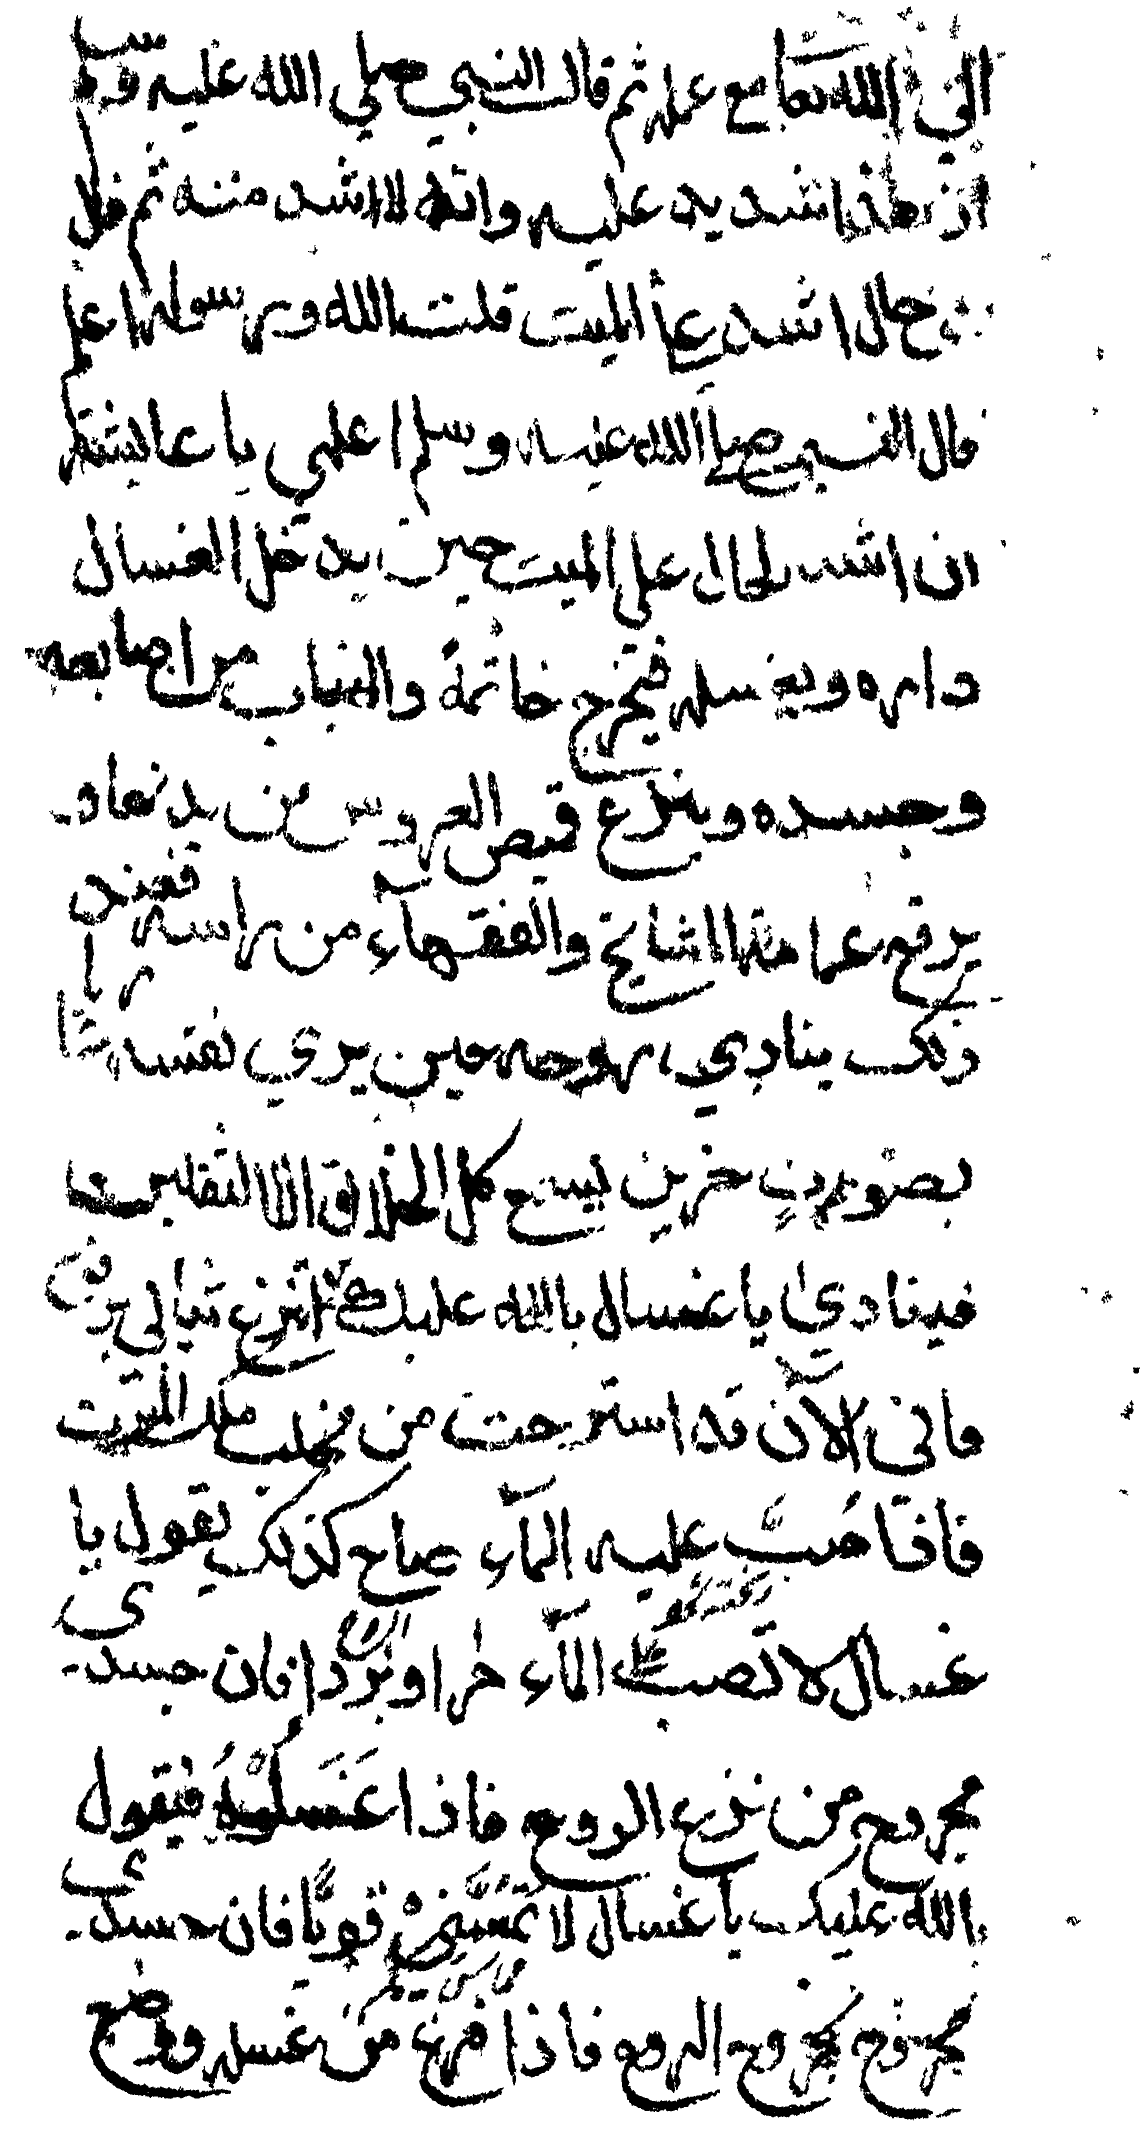 الي الله تعا مع عمله ثم قال النبي صلي الله عليه وسلم
ان هذا شديد عليه وانه لا اشد منه ثم قال
حال اشد علي الميت قلت الله ورسوله اعلم
قال النبي صلي الله عليه وسلم اعلمي يا عايشة
ان اشد لحال علي الميت حين يدخل الغسال
داره ويغسله فيخرج خاتمة والثياب من اصابعه
وجسده وينزع قميص العروس من بدنها و
يرفع عمامة المشايخ والفقهآء من راسه فعند
ذلك ينادي روحه حين يري نفسه عريانا
بصوت حزين يسمع كل الخلاق الا الثقلين
فينادي يا غسال بالله عليك انزع ثيابي برفق
فاني الآن قد استرحت من مخلب ملك الموت
فاذا صب عليه المآء صاح كذلك يقول يا
غسال لا تصب المآء حرا او بردا فان جسدي
مجروح من نزع الروح فاذا غسلوه فيقول
بالله عليك يا غسال لا تمسني قويا فان جسدي
مجروح بخروج الروح فاذا فرغ من غسله ووضع